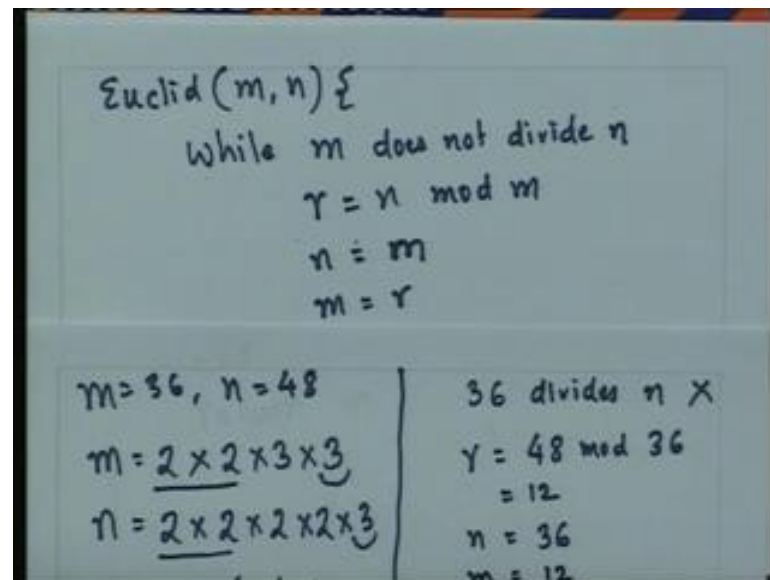 Euclid (m, n) {
While m does not divide n
r = n mod m
n = m
m = r
m = 36, n = 48
m = 2 × 2 × 3 × 3
n = 2 × 2 × 2 × 2 × 3
36 divides n ×
r = 48 mod 36
= 12
n = 36
m = 12